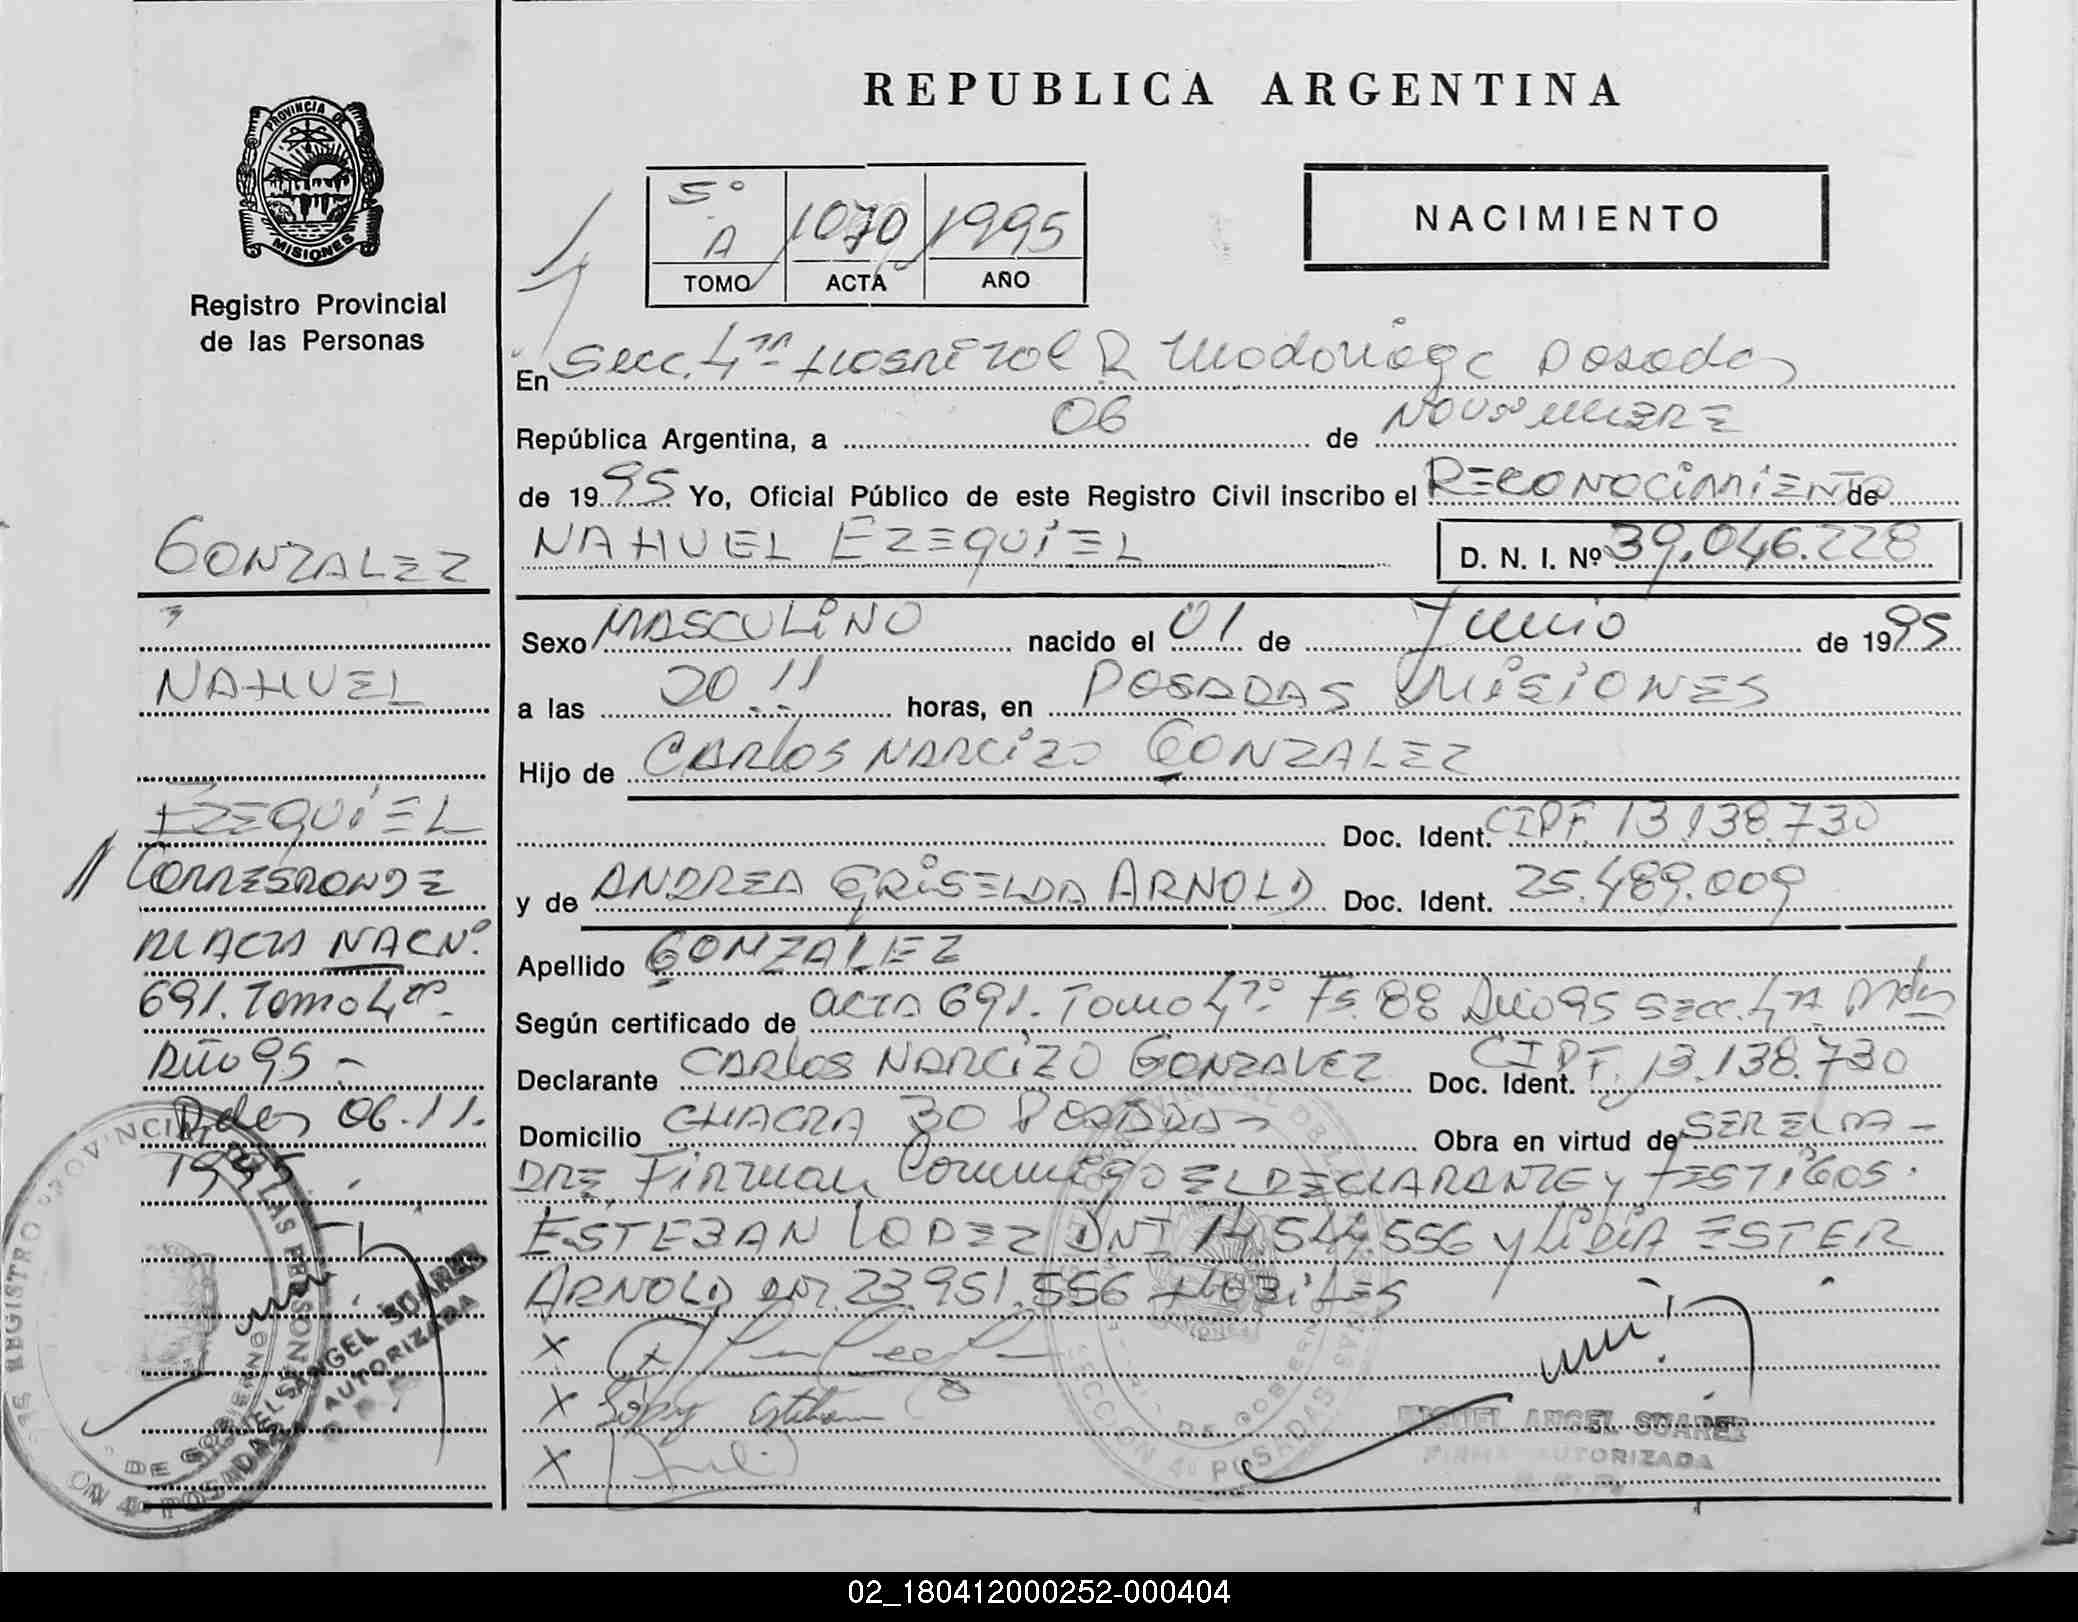 REPUBLICA ARGENTINA
PROVINCIA DE
MISIONES
Registro Provincial
de las Personas
5º
A
1070
1995
TOMO
ACTA
AÑO
NACIMIENTO
En Secc. 4ta Hospital R Madariaga Posadas
República Argentina, a 06 de NOVIEMBRE
de 1995 Yo, Oficial Público de este Registro Civil inscribo el RECONOCIMIENTO de
NAHUEL EZEQUIEL D. N. I. Nº 39.046.228
Sexo MASCULINO nacido el 01 de Junio de 1995
a las 20 11 horas, en POSADAS MISIONES
Hijo de CARLOS NARCIZO GONZALEZ
Doc. Ident. CIPF. 13.138.730
y de ANDREA GRISELDA ARNOLD Doc. Ident. 25.489.009
Apellido GONZALEZ
Según certificado de ACTA 691. Tomo 4to. Fs. 88 Año 95 Secc. 4ta Pdas
Declarante CARLOS NARCIZO GONZALEZ Doc. Ident. CIPF. 13.138.730
Domicilio CHACRA 30 POSADAS Obra en virtud de SER EL PA-
DRE, Firman Conmigo EL DECLARANTE y TESTIGOS.
ESTEBAN LOPEZ DNI 14.544.556 y LIDIA ESTER
ARNOLD DNI. 23.951.556 HABILES
X
X López Esteban
X
MIGUEL ANGEL SUAREZ
FIRMA AUTORIZADA
GONZALEZ
NAHUEL
EZEQUIEL
CORRESPONDE
AL ACTA NAC Nº
691. Tomo 4to.
Año 95 -
Pdas 06.11.
1995.
MIGUEL ANGEL SUARES
AUTORIZADA
02_180412000252-000404